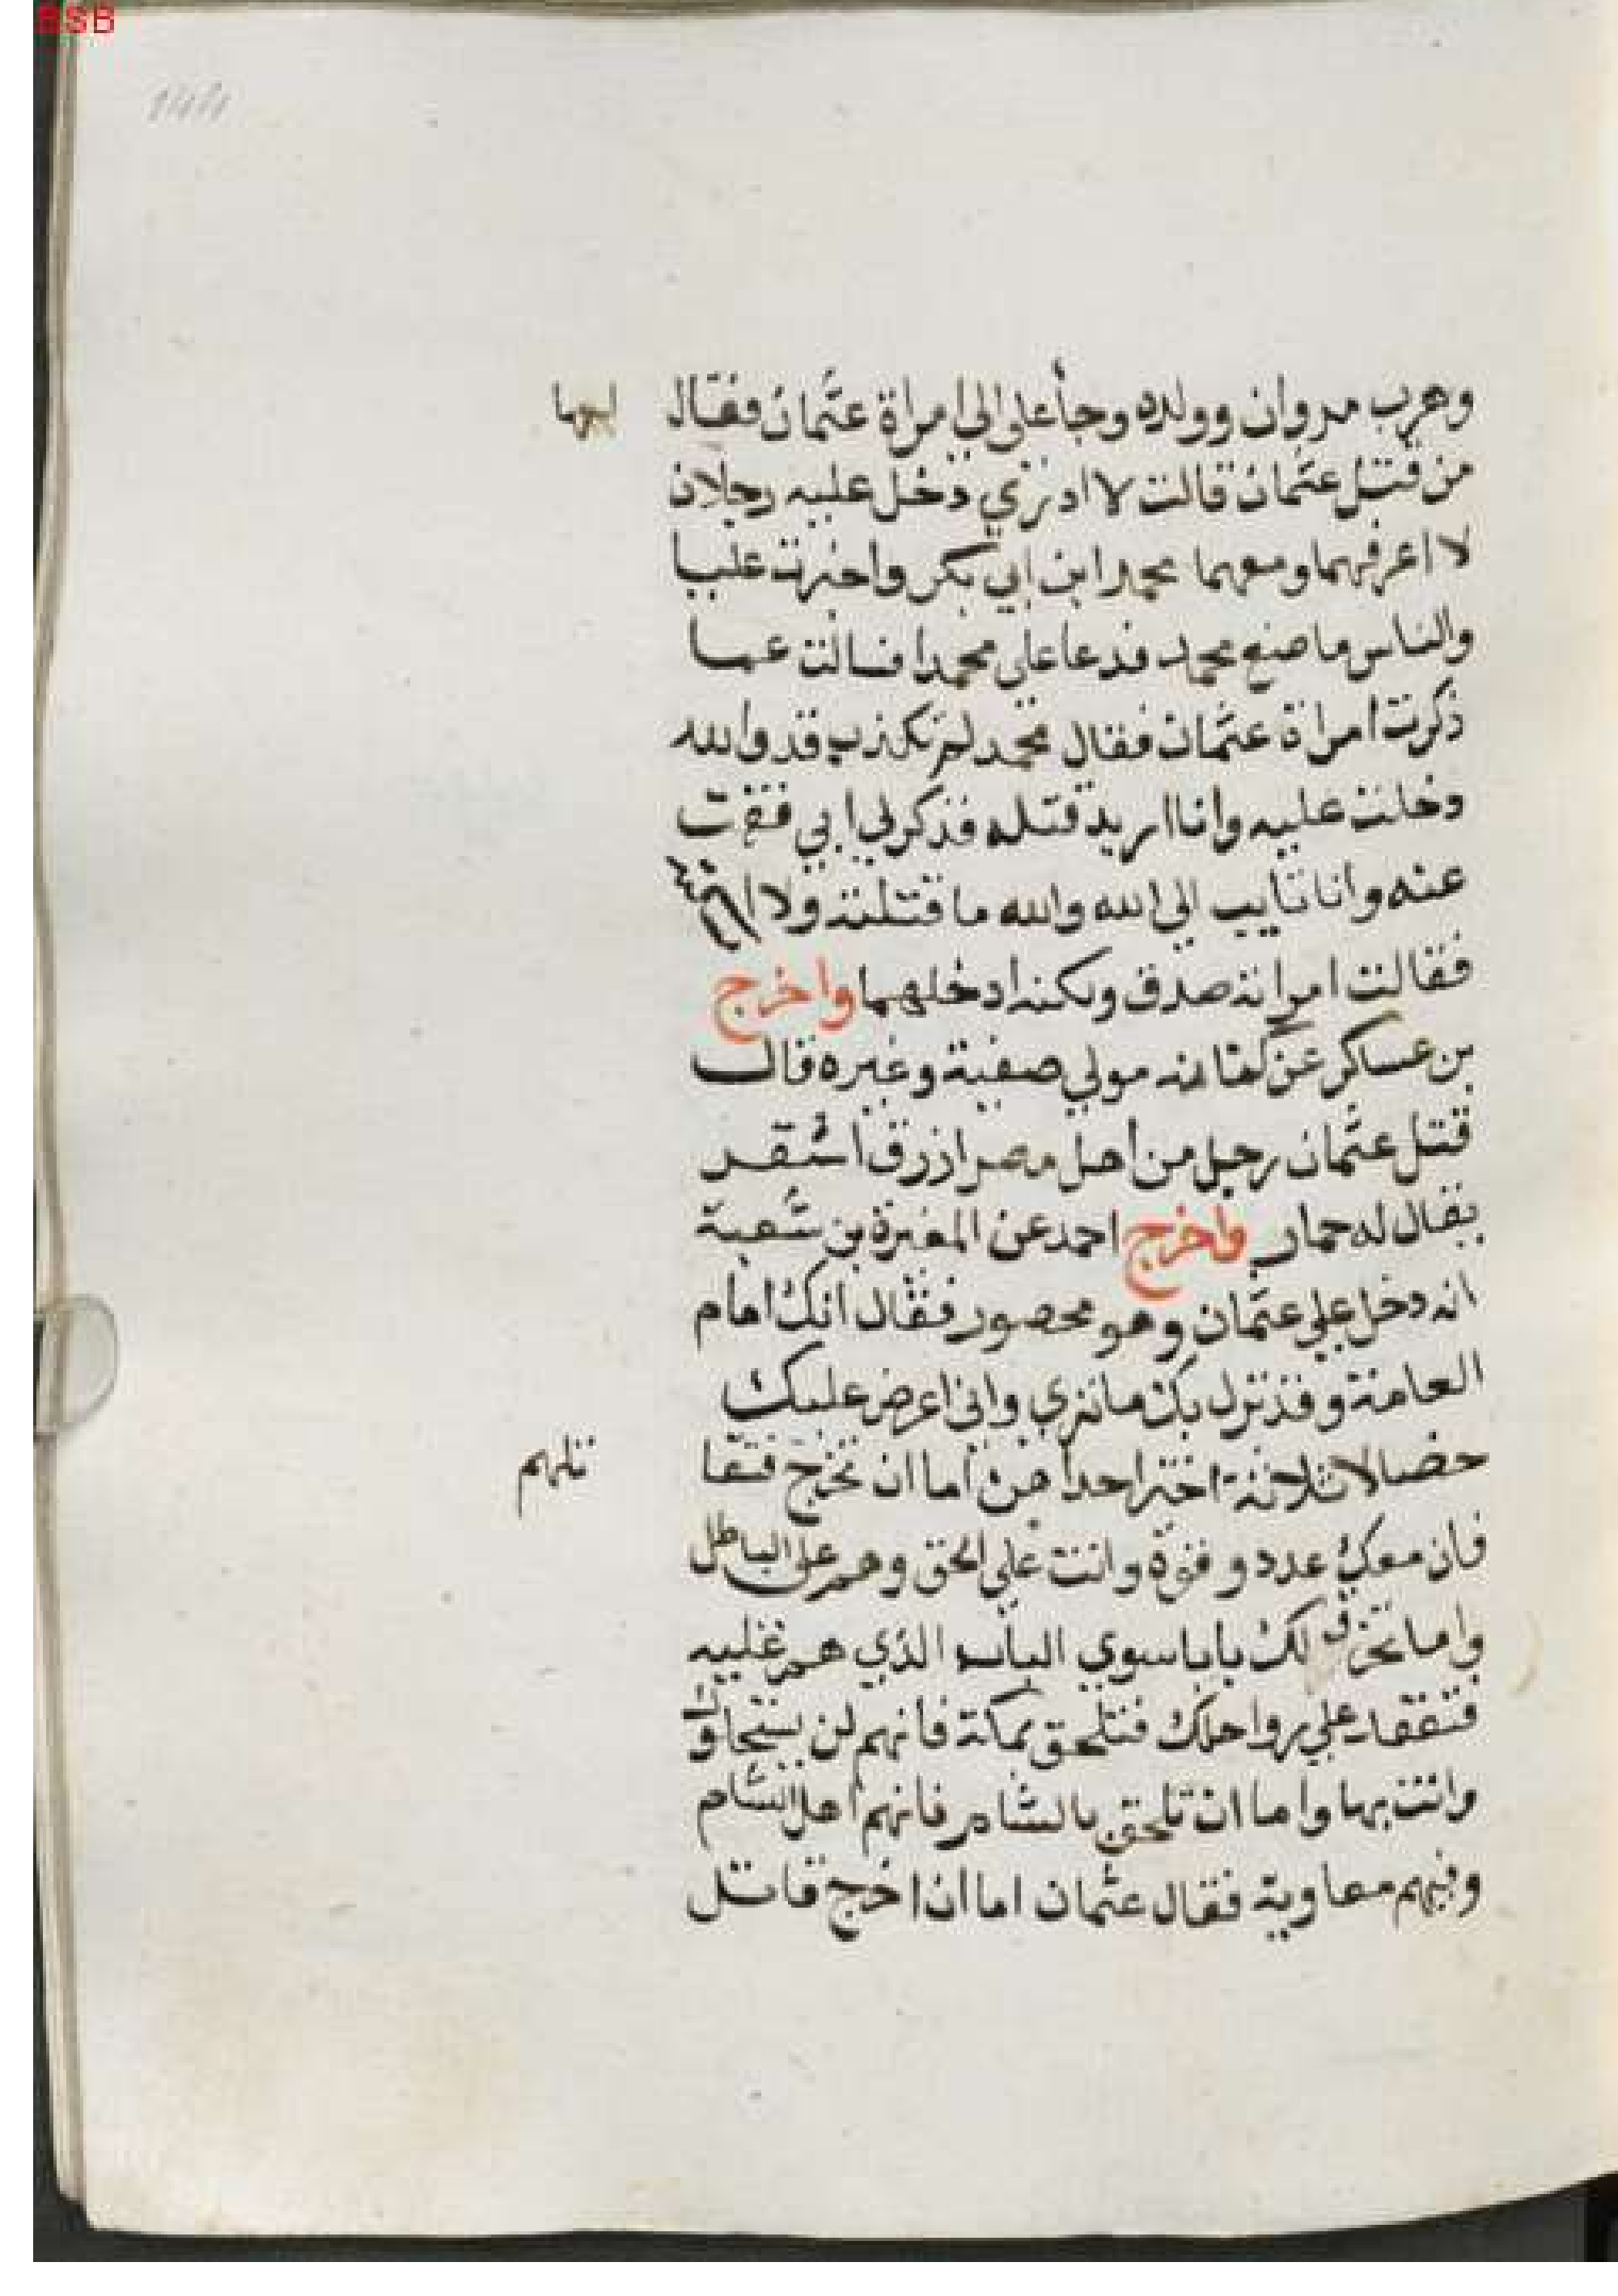 BSB
144
وهرب مروان وولده وجأ علي الي امراة عثمان فقال لها
من قتل عثمان قالت لا ادري دخل عليه رجلان
لا اعرفهما ومعهما محمد ابن ابي بكر واخبرت عليا
والناس ما صنع محمد فدعا علي محمدا فسالت عما
ذكرت امراة عثمان فقال محمد لم تكذب قد والله
دخلت عليه وانا اريد قتله فذكر لي ابي فقمت
عنه وانا تايب الي الله والله ما قتلته ولا امسكته
فقالت امراته صدق ولكنه ادخلهما واخرج
بن عساكر عن كنانه مولي صفية وغيره قال
قتل عثمان رجل من اهل مصر ازرق اشقر
يقال له حمار واخرج احمد عن المغيرة بن شعبة
انه دخل علي عثمان وهو محصور فقال انك امام
العامة وقد نزل بك ما تري واني اعرض عليك
خصالا ثلاثة اختر احداهن اما ان تخرج فتقا تلهم
فان معك عدد وقوة وانت علي الحق وهم علي الباطل
واما تخرق لك بابا سوي الباب الذي هم عليه
فتقعد علي رواحلك فتلحق بمكة فانهم لن يستحلوك
وانت بها واما ان تلحق بالشام فانهم اهل الشام
وفيهم معاوية فقال عثمان اما ان اخرج فاتل